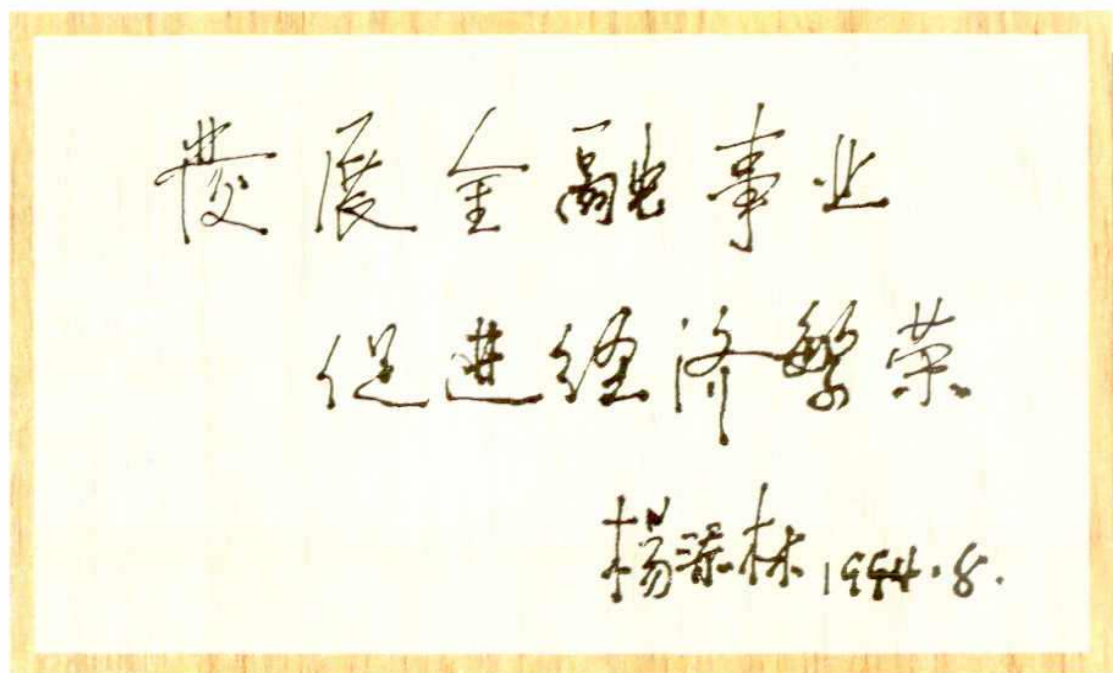 發展金融事业
促进经济繁荣
楊添林 1994.8.